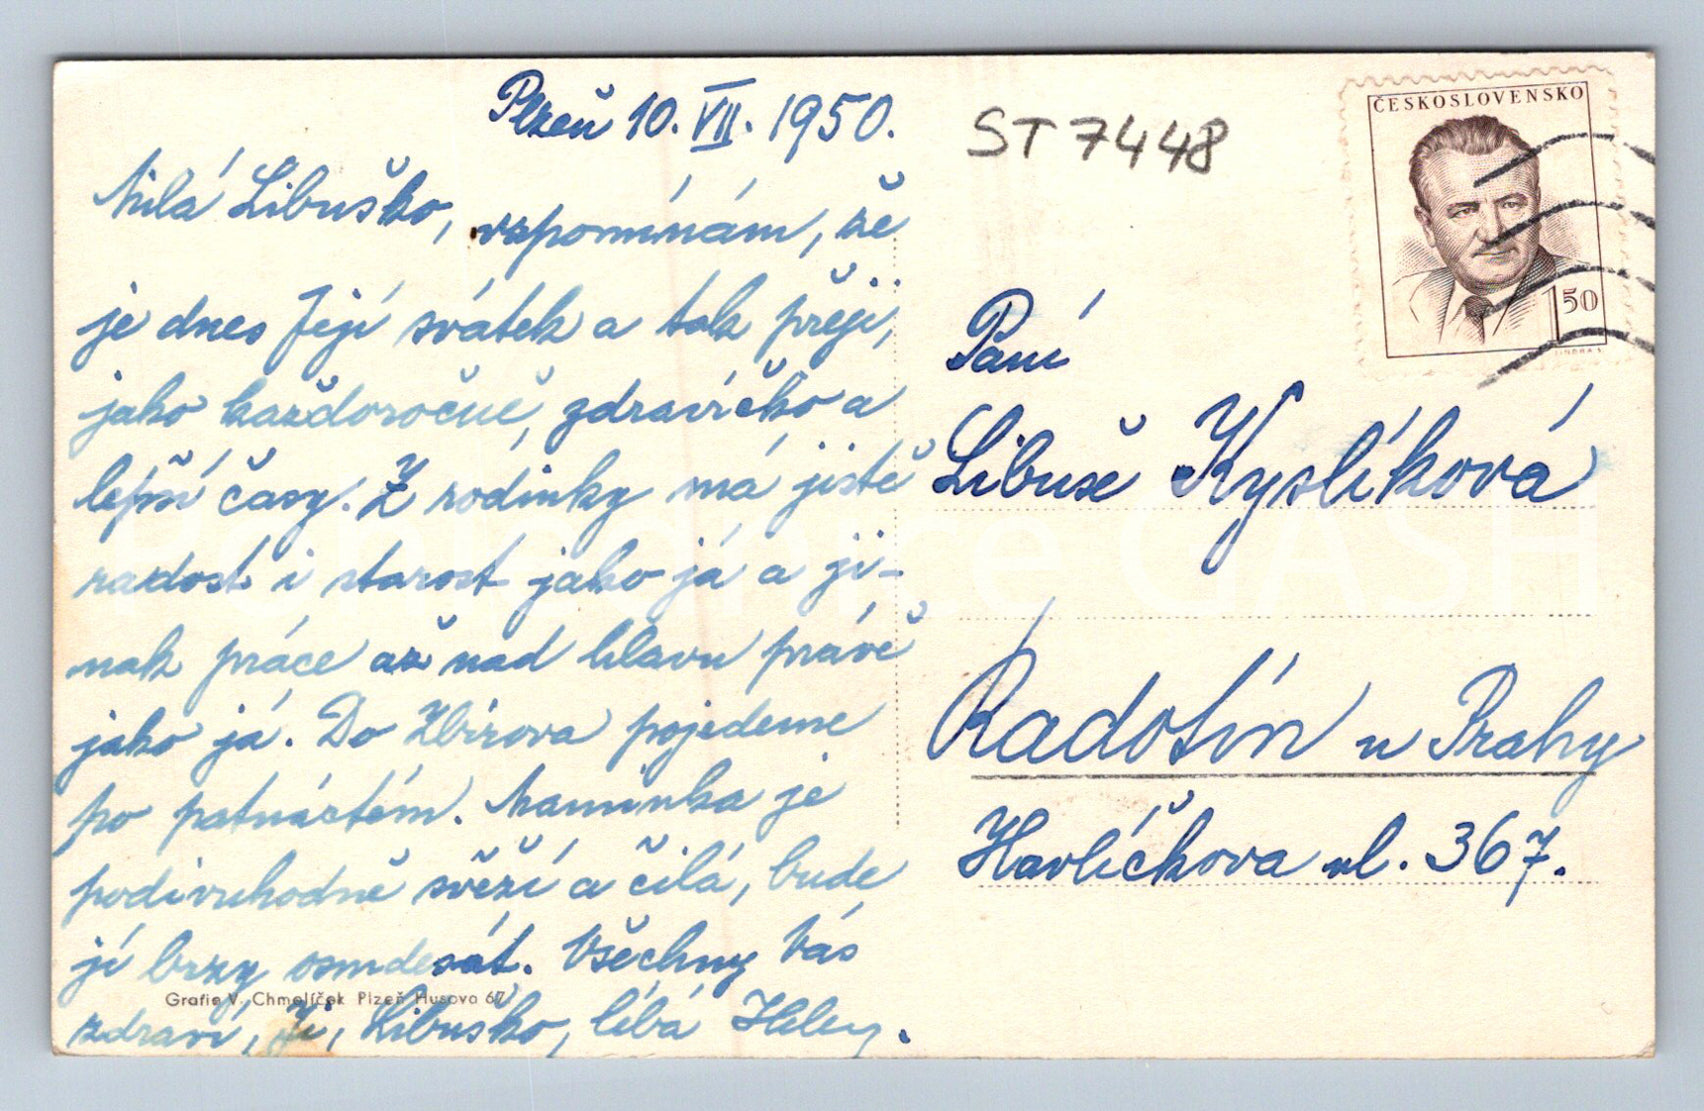 Plzeň 10. VII. 1950.
Milá Libuško, vzpomínám, že
je dnes Její svátek a tak přeji,
jako každoročně, zdravíčko a
lepší časy. Z rodinky má jistě
radost i starost jako já a ji-
nak práce až nad hlavu právě
jako já. Do Zbirova pojedeme
po patnáctém. Maminka je
podivuhodně svěží a čilá, bude
jí brzy osmdesát. Všechny Vás
zdraví, Ji, Libuško, líbá Helen.
Grafie V. Chmelíček Plzeň Husova 67
ST 7448
ČESKOSLOVENSKO
1'50
JINDRA S.
Paní
Libuše Kyslíková
Radotín u Prahy
Havlíčkova ul. 367.
Pohlednice GASH